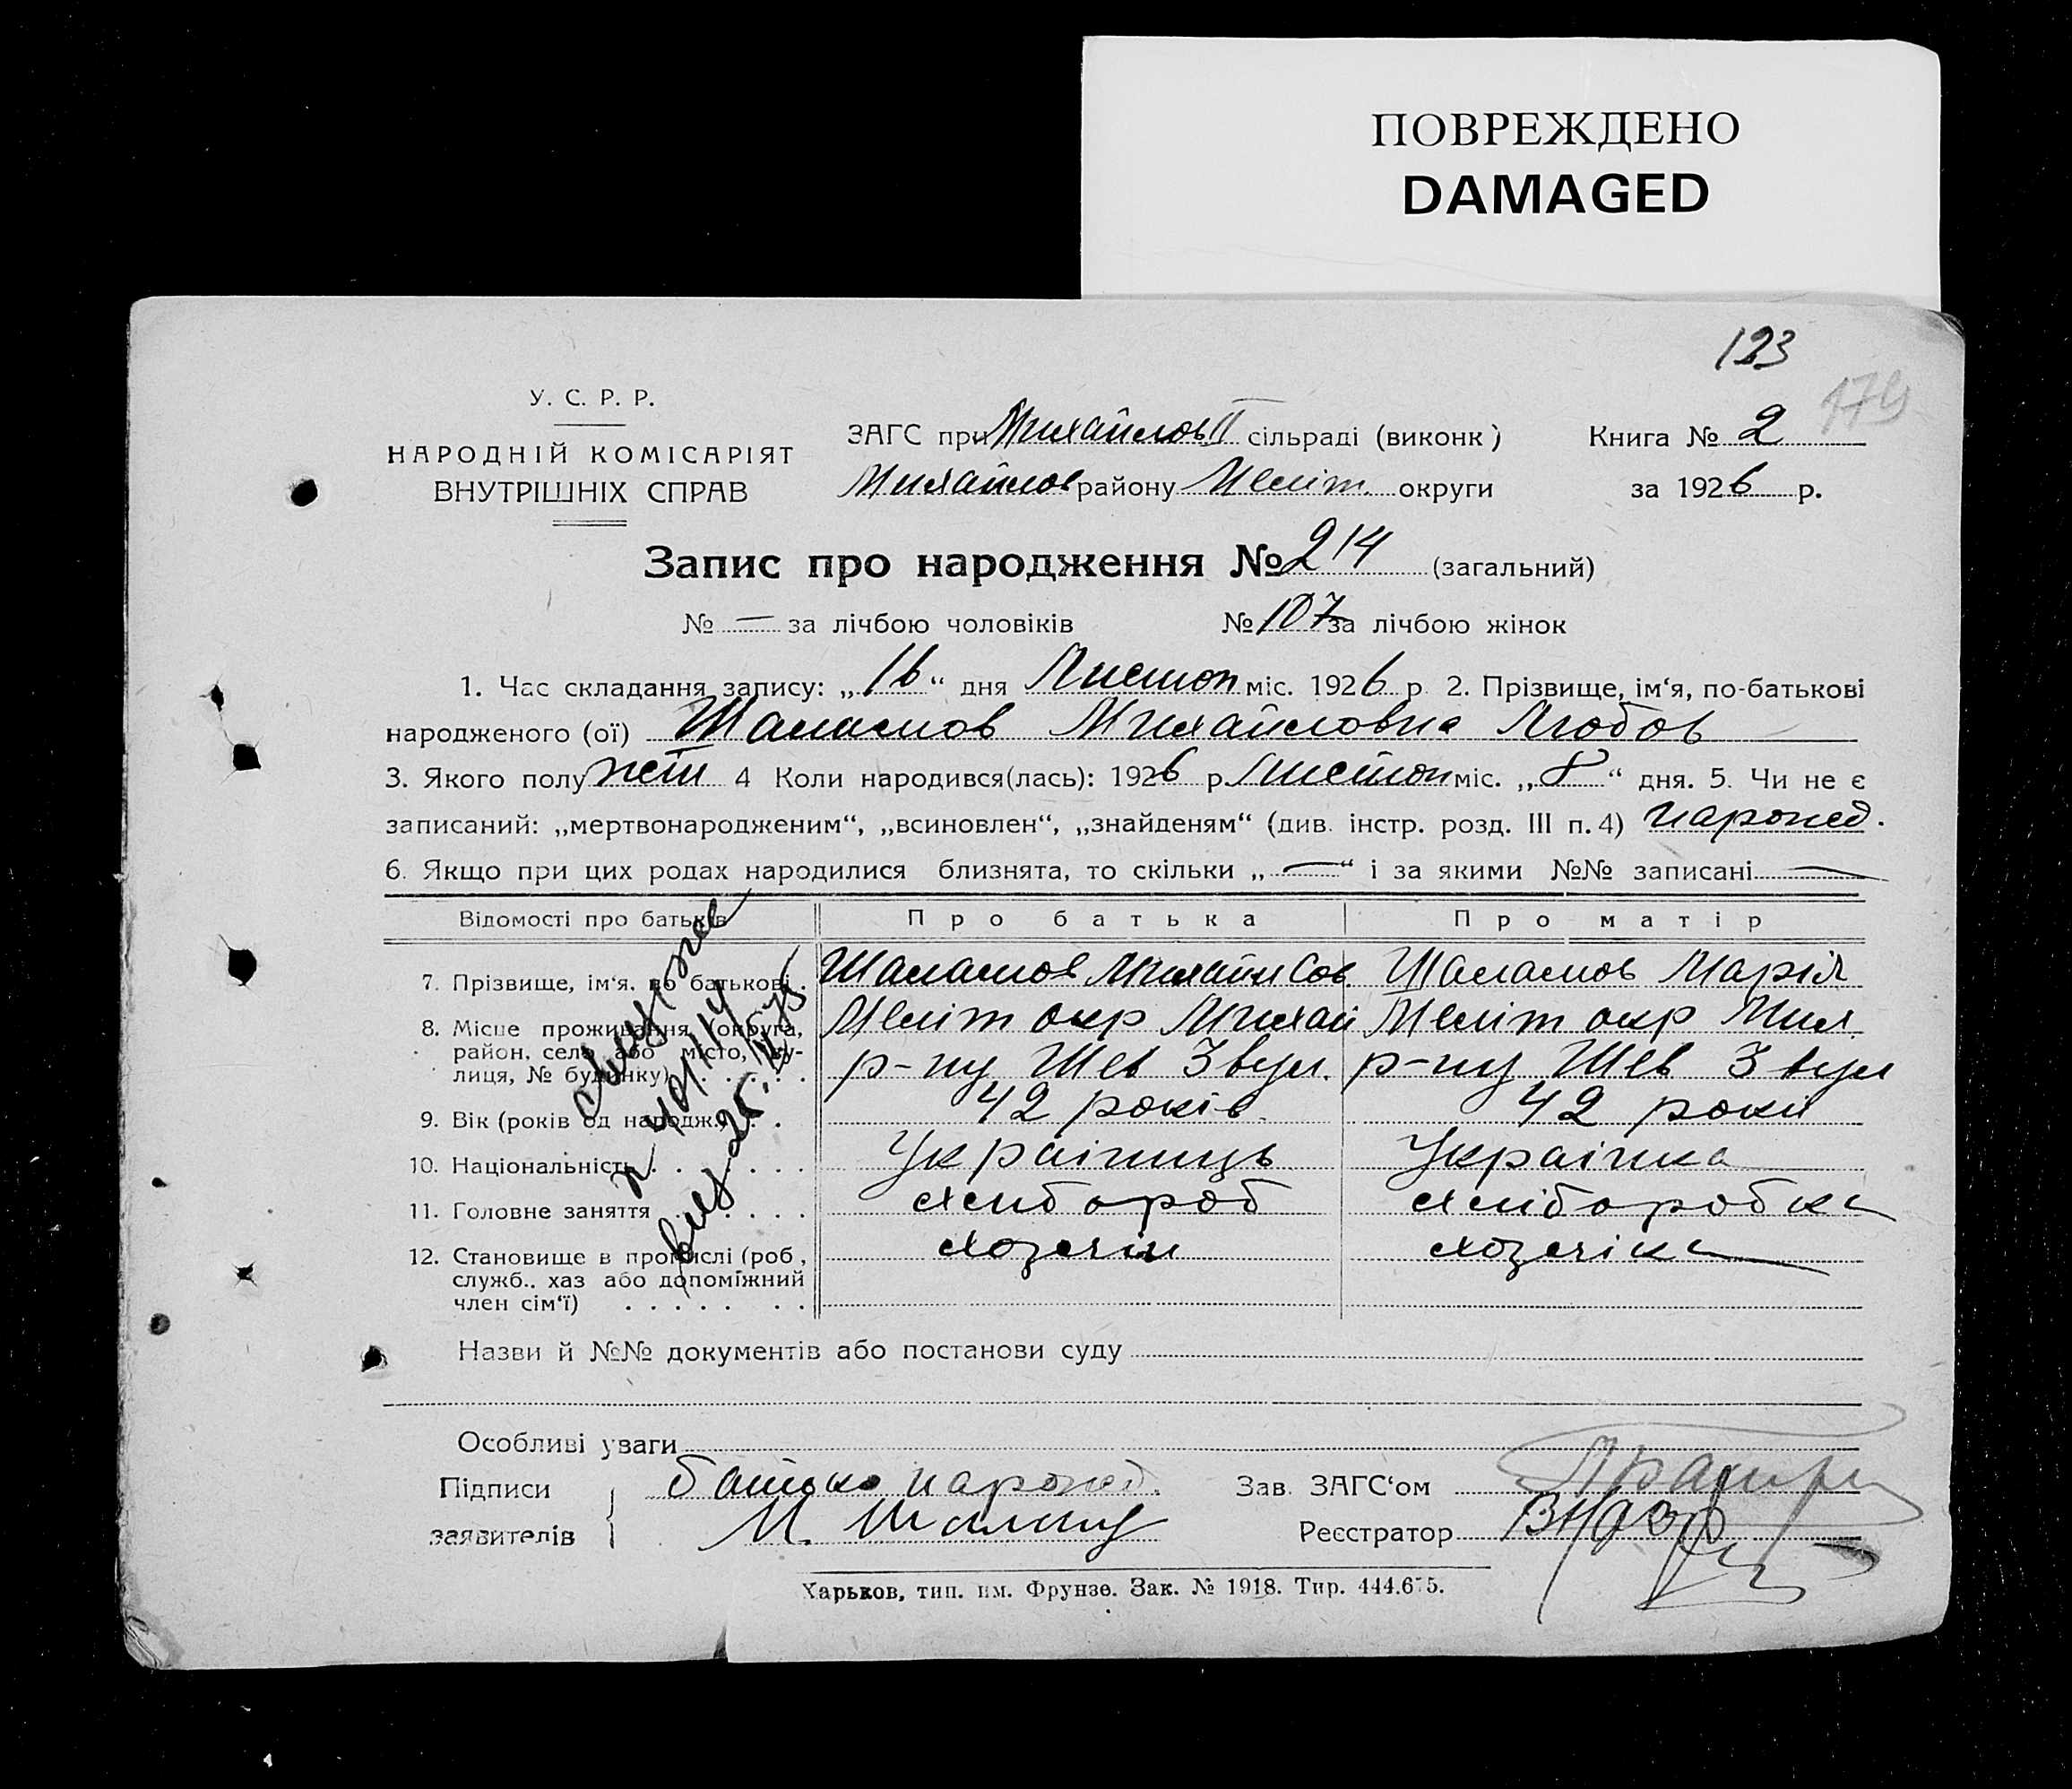 ПОВРЕЖДЕНО
DAMAGED
123
179
У. С. Р. Р.
НАРОДНІЙ КОМІСАРІЯТ
ВНУТРІШНІХ СПРАВ
ЗАГС при Михайлов. II сільраді (виконк)
Михайлов району Меліт. округи
Книга № 2
за 1926 р.
Запис про народження № 214 (загальний)
№ — за лічбою чоловіків № 107 за лічбою жінок
1. Час складання запису: „16“ дня Листоп міс. 1926 р 2. Прізвище, ім‘я, по-батькові
народженого (ої) Шаламов Михайловна Любов
3. Якого полу жін 4 Коли народився(лась): 1926 р. Листоп міс. „8“ дня. 5. Чи не є
записаний: „мертвонародженим“, „всиновлен“, „знайденям“ (див. інстр. розд. III п. 4) народ.
6. Якщо при цих родах народилися близнята, то скільки „—“ і за якими №№ записані —
Відомості про батьків Про батька Про матір
7. Прізвище, ім‘я, по батькові . Шаламов Михайл Шаламов Марія
8. Місце проживання (округа, Меліт окр Михай Меліт окр Мих.
район, село або місто, ву- р-ну Шев 3 вул. р-ну Шев 3 вул
лиця, № будинку) . . . . .
9. Вік (років од народж.) . . 42 років 42 роки
10. Національність . . . . . . . Українць Українка
11. Головне заняття . . . . . . хлібороб хліборобка
12. Становище в промислі (роб., хозяїн хозяіка
служб., хаз або допоміжний
член сім‘ї) . . . . . . .
Назви й №№ документів або постанови суду
Особливі уваги
Підписи батько народ. Зав. ЗАГС‘ом
заявителів М. Реєстратор
Харьков, тип. им. Фрунзе. Зак. № 1918. Тир. 444.675.